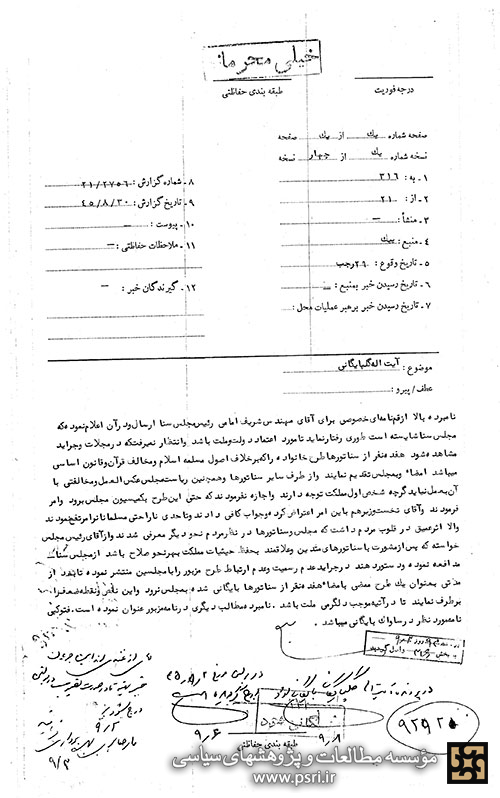 خیلی محرمانه
طبقه بندی حفاظتی
درجه فوریت
صفحه شماره یک از یک صفحه
نسخه شماره یک از چهار نسخه
۱ـ به : ۳۱۶
۲ـ از : ۲۱۰
۳ـ منشأ : —
۴ـ منبع : یک
۵ـ تاریخ وقوع : رجب
۶ـ تاریخ رسیدن خبر بمنبع : —
۷ـ تاریخ رسیدن خبر برهبر عملیات محل :
۸ـ شماره گزارش : ۲۱/۲۷۵۶
۹ـ تاریخ گزارش : ۴۵/۸/۳۰
۱۰ـ پیوست : —
۱۱ـ ملاحظات حفاظتی : —
۱۲ـ گیرندگان خبر : —
موضوع : آیت اله گلپایگانی
عطف / پیرو :
نامبرده بالا از قم نامه‌ای خصوصی برای آقای مهندس شریف امامی رئیس مجلس سنا ارسال و در آن اعلام نموده که
مجلس سنا شایسته است طوری رفتار نماید تا مورد اعتماد دولت و ملت باشد و انتظار نمیرفت که در مجلات و جراید
مشاهده شود هفده نفر از سناتورها طرح خانواده را که برخلاف اصول مسلمه اسلام و مخالف قرآن و قانون اساسی
میباشد امضاء و بمجلس تقدیم نمایند و از طرف سایر سناتورها و همچنین ریاست مجلس عکس العمل و مخالفتی با
آن بعمل نیاید گرچه شخص اول مملکت توجه دارند و اجازه نفرمودند که حتی این طرح بکمیسیون مجلس برود و امر
فرمودند و آقای نخست وزیر هم باین امر اعتراض کرده و جواب کافی دادند و تا حدی ناراحتی مسلمانان را مرتفع نمودند
والا اثر عمیق در قلوب مردم داشت که مجلس و سناتورها در نظر مردم نحو دیگر معرفی شدند و از آقای رئیس مجلس
خواسته که پس از مشورت با سناتورهای متدین و علاقمند بحفظ حیثیات مملکت بهر نحو صلاح باشد از مجلس سنا
مدافعه نموده و دستور دهند در جراید عدم رسمیت و عدم ارتباط طرح مزبور را با مجلسین منتشر نموده تا بعد از
مدتی بعنوان یک طرح معضی بامضاء هفده نفر از سناتورها بایگانی شده بمجلس نرود و این نقص و نقطه ضعف را
برطرف نمایند تا در آتیه موجب دلگرمی ملت باشد . نامبرده مطالب دیگری در نامه مزبور عنوان نموده است . فتوکپی
نامه مورد نظر در ساواک بایگانی میباشد .
بایگانی شود
طبقه بندی حفاظتی
۹/۸
۹/۶
۹/۲
۹/۳
۹۲۹۲۵
مؤسسه مطالعات و پژوهشهای سیاسی
www.psri.ir